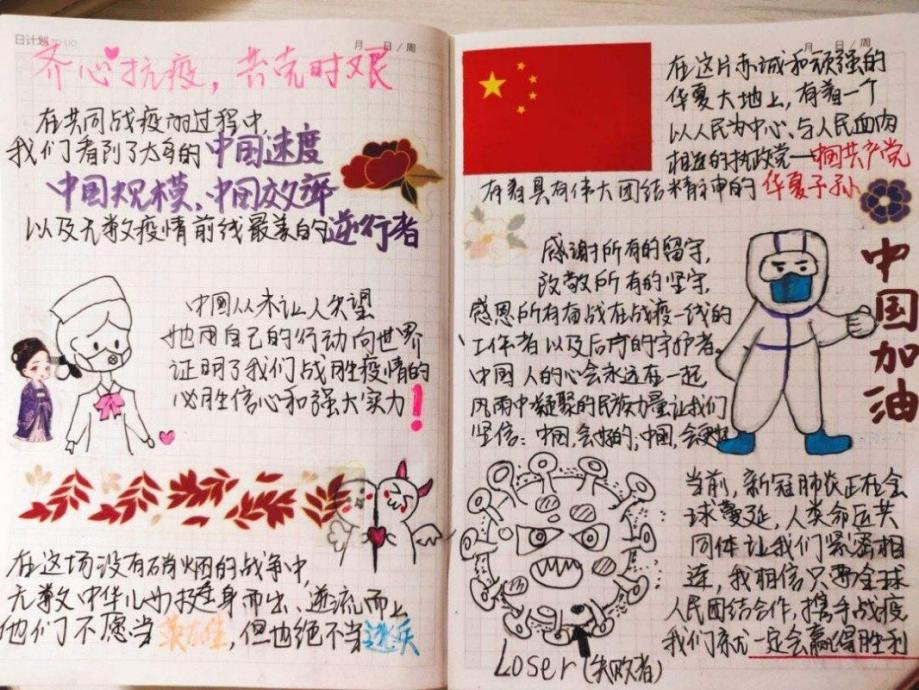 日计划 TO DO
月 日/周
齐心抗疫，共克时艰
在共同战疫的过程中
我们看到了大哥的中国速度
中国规模、中国效率
以及无数疫情前线最美的逆行者
中国从未让人失望
她用自己的行动向世界
证明了我们战胜疫情的
必胜信心和强大实力！
在这场没有硝烟的战争中
无数中华儿女挺身而出、逆流而上
他们不愿当英雄，但也绝不当逃兵
月 日/周
在这片赤诚和顽强的
华夏大地上，有着一个
以人民为中心、与人民血肉
相连的执政党—中国共产党
有着具有伟大团结精神的华夏子孙
感谢所有的留守，
致敬所有的坚守，
感恩所有奋战在战疫一线的
工作者以及后方的守护者。
中国人的心会永远在一起，
风雨中凝聚的民族力量让我们
坚信：中国，会好的；中国，会更
中国加油
当前，新冠肺炎正在全
球蔓延，人类命运共
同体让我们紧密相
连，我相信只要全球
人民团结合作，携手战疫
我们就一定会赢得胜利
Loser(失败者)